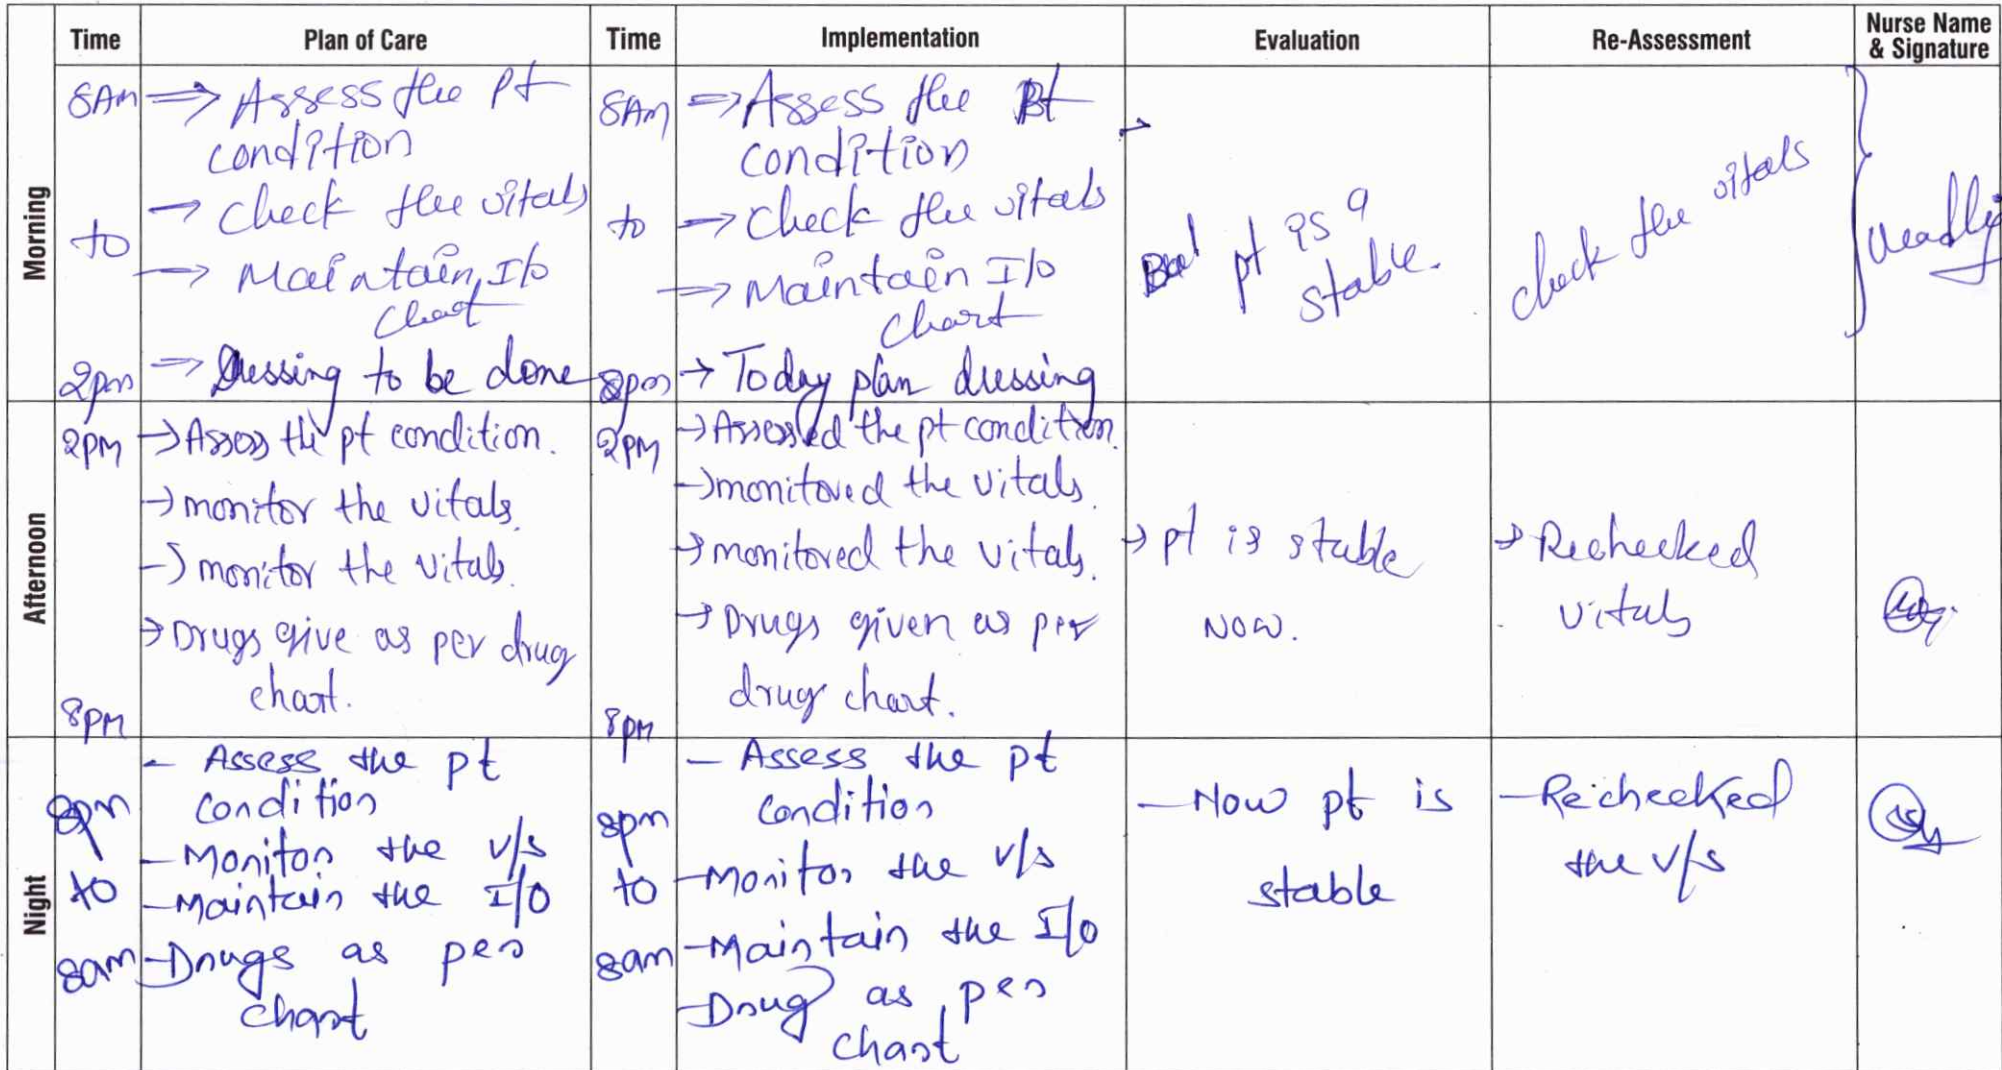 Time Plan of Care Time Implementation Evaluation Re-Assessment Nurse Name
& Signature
Morning
8AM
to
2pm
⇒ Assess the pt
condition
→ check the vitals
→ Maintain I/o
chart
⇒ Dressing to be done
8AM
to
2pm
⇒ Assess the Pt
condition
⇒ check the vitals
⇒ Maintain I/o
chart
→ Today plan dressing
→
pt is
stable.
check the vitals
Afternoon
2PM
8PM
→ Assess the pt condition.
→ monitor the vitals.
→ monitor the vitals.
→ Drugs give as per drug
chart.
2PM
8PM
→ Assessed the pt condition.
→ monitored the vitals.
→ monitored the vitals.
→ Drugs given as per
drug chart.
→ pt is stable
now.
→ Rechecked
vitals
Night
8pm
to
8am
- Assess the pt
condition
- Monitor the v/s
- Maintain the I/O
- Drugs as per
chart
8pm
to
8am
- Assess the pt
condition
- Monitor the v/s
- Maintain the I/o
- Drug as per
chart
- Now pt is
stable
- Rechecked
the v/s